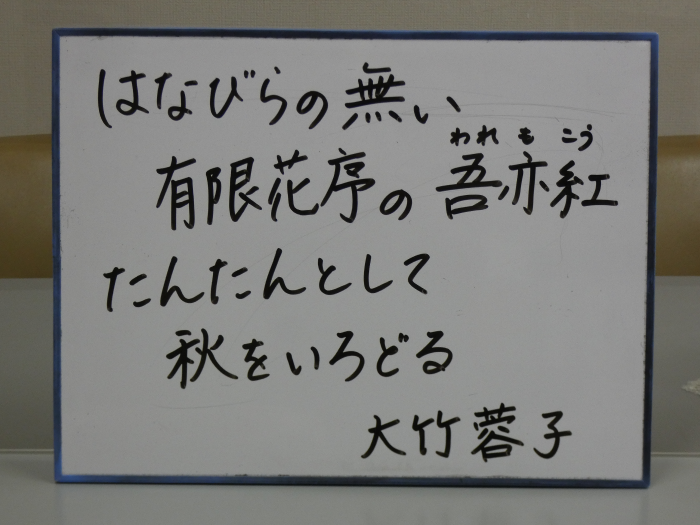 はなびらの無い
われもこう
有限花序の吾亦紅
たんたんとして
秋をいろどる
大竹蓉子